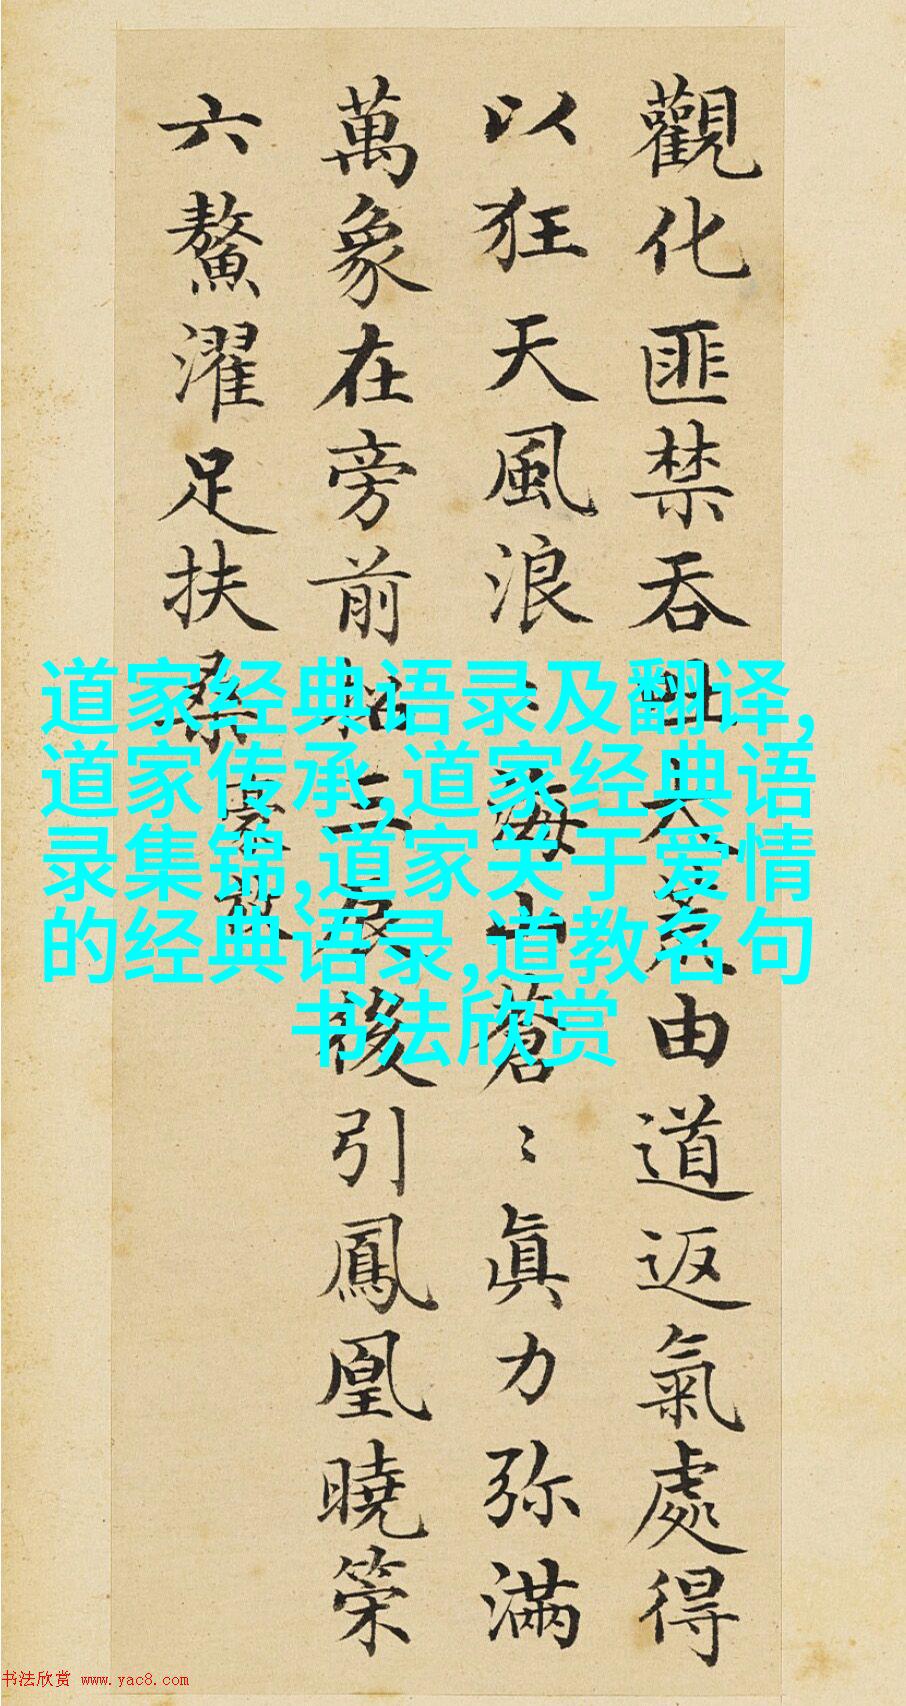 觀化匪禁吞吐大荒由道返氣處得
以狂天風浪〻海山蒼〻眞力弥滿
萬象在旁前招三辰後引鳳凰曉策
六鰲濯足扶桑
道家经典语录及翻译,
道家传承,道家经典语
录集锦,道家关于爱情
的经典语录,道教名句
书法欣赏
书法欣赏 www.yac8.com